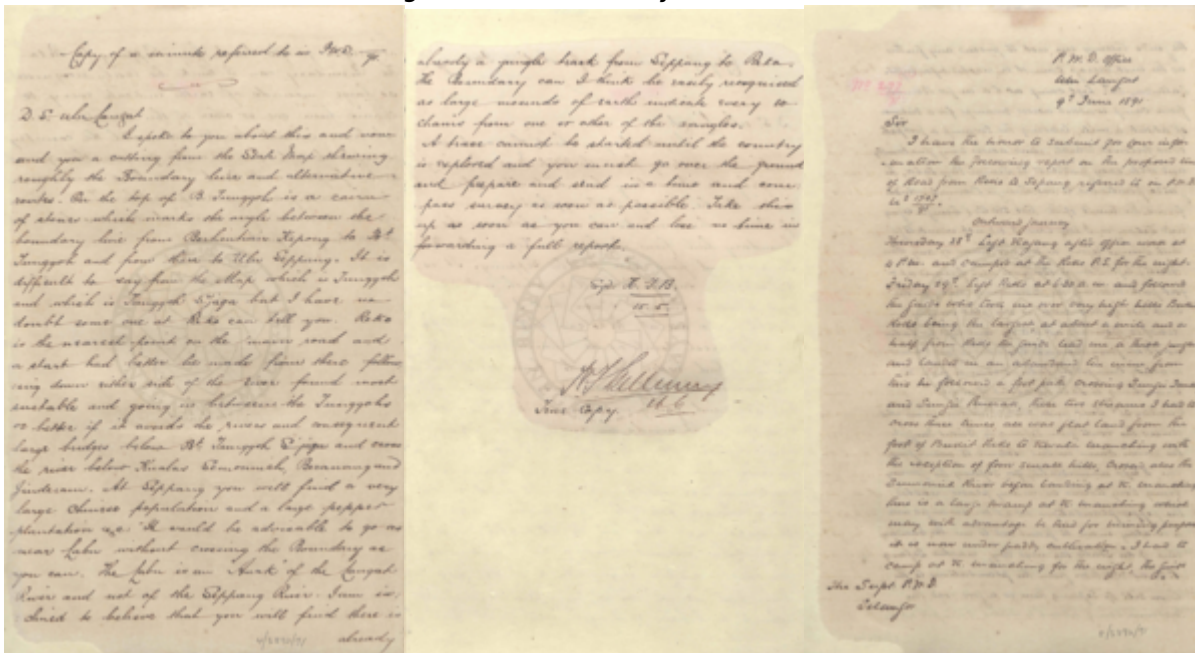 Copy of a minute referred to in P.W.D.
D. E. Ulu Langat
I spoke to you about this and
and you a cutting from the State Map shewing
roughly the Boundary line and alternative
routes. On the top of B. Tunggoh is a cairn
of stones which marks the angle between the
boundary line from Barhentian Kepong to Bt
Tunggoh and from there to Ulu Sippang. It is
difficult to say from the Map which is Tunggoh
and which is Tunggoh but I have no
doubt some one at Reko can tell you. Reko
is the nearest point on the main road and
a start had better be made from there follow
ing down either side of the River found most
suitable and going in between the Tunggohs
or better if it avoids the rivers and consequent
large bridges below Bt Tunggoh and cross
the river below Kualas Beranang and
At Sippang you will find a very
large Chinese population and a large pepper
plantation It would be advisable to go as
near Labu without crossing the Boundary as
you can. The Labu is an "Anak" of the Langat
River and not of the Sippang River. I am in
clined to believe that you will find there is
already
already a jungle track from Sippang to
The Boundary can I think be easily recognised
as large mounds of earth indicate every 10
chains from one or other of the angles.
A trace cannot be started until the country
is explored and you must go over the ground
and prepare and send in a time and com
pass survey as soon as possible. Take this
up as soon as you can and lose no time in
forwarding a full report.
Sgd H. F. B.
True Copy.
P. W. D. Office
Ulu Langat
9th June 1891
Sir
I have the honor to submit for your infor
mation the following report on the proposed line
of Road from Reko to Sepang referred to in P.W.D.
Outward journey
Thursday 28th Left Kajang after office work at
4 P.m. and camped at the Reko P.S. for the night.
Friday 29th. Left Reko at 6.30 a.m. and followed
the guide who took me over very high hills Bukit
Reko being the largest at about a mile and a
half from Reko the guide led me a thick jungle
and landed in an abandoned tin mine from
this he followed a foot path crossing Sungie
and Sungie these two streams I had to
cross three times all was flat land from the
foot of Bukit Reko to
the exception of four small hills, crossed also the
River before landing at
this is a large swamp at which
may with advantage be used for
it is now under paddy cultivation. I had to
camp at for the night, the first
The Supt P.W.D.
Selangor